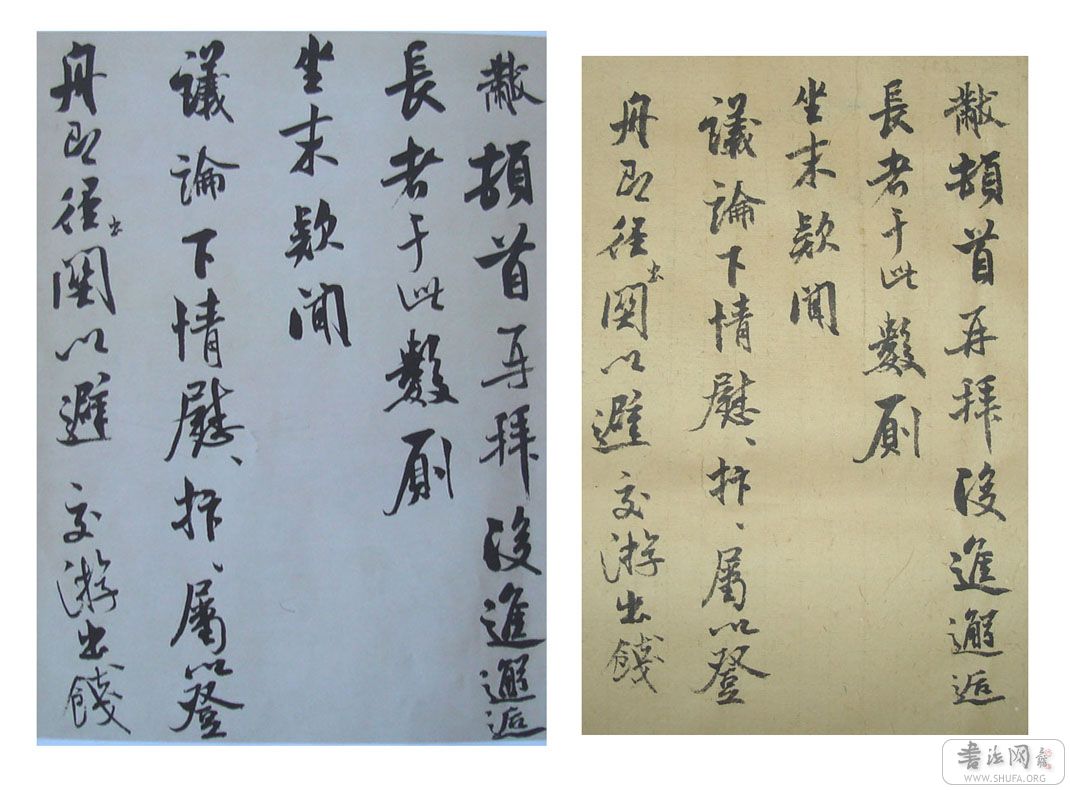 黻頓首再拜後進邂逅
長者于此數厠
坐末欵聞
議論下情慰、抃、屬以登
舟即徑出關以避交游出餞
黻頓首再拜後進邂逅
長者于此數厠
坐末欵聞
議論下情慰、抃、屬以登
舟即徑出關以避交游出餞
书法网
WWW.SHUFA.ORG